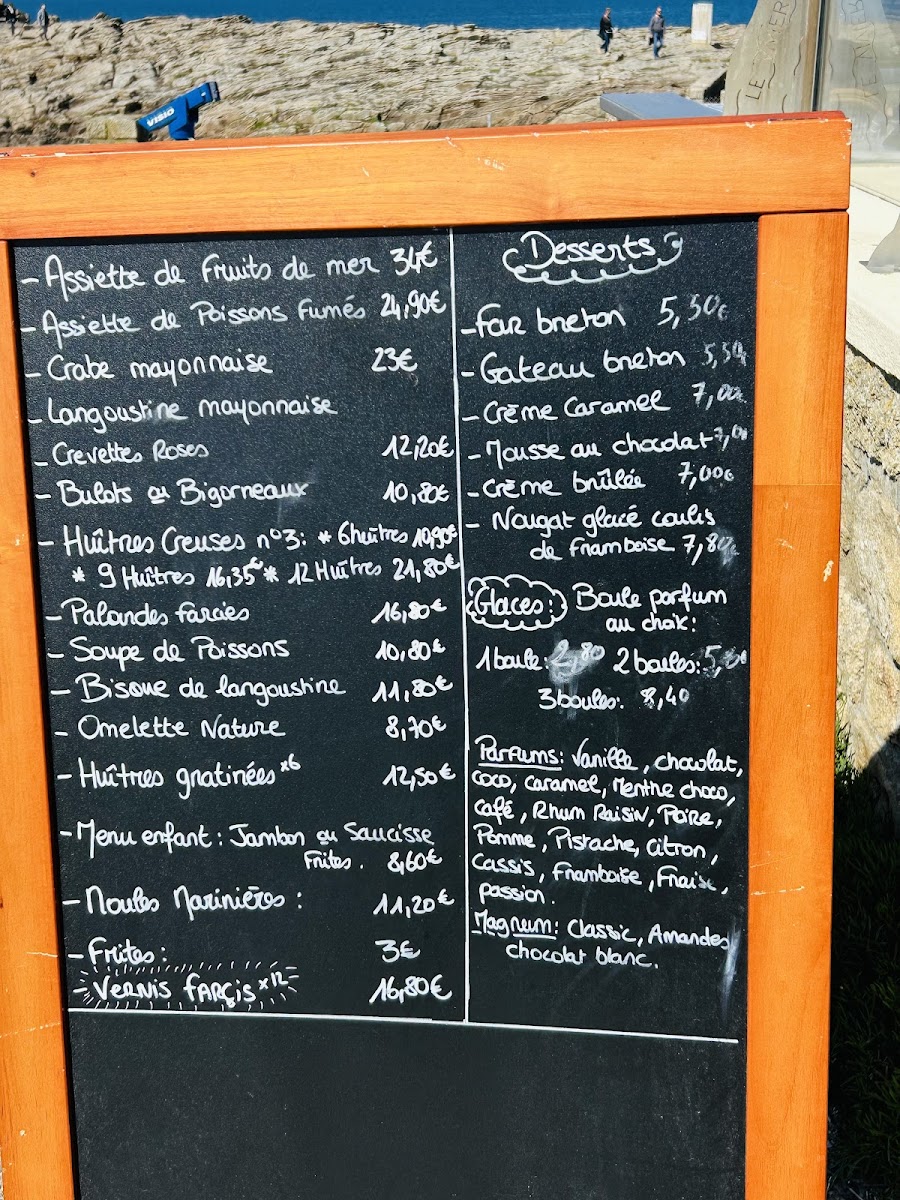 VISIO
- Assiette de Fruits de mer 34€
- Assiette de Poissons Fumés 24,90€
- Crabe mayonnaise 23€
- Langoustine mayonnaise
- Crevettes Roses 12,20€
- Bulots ou Bigorneaux 10,80€
- Huîtres Creuses n°3: * 6 huîtres 10,90€
* 9 Huîtres 16,35€ * 12 Huîtres 21,80€
- Palourdes farcies 16,80€
- Soupe de Poissons 10,80€
- Bisque de langoustine 11,80€
- Omelette Nature 8,70€
- Huîtres gratinées x6 12,50€
- Menu enfant : Jambon ou Saucisse
Frites. 8,60€
- Moules Marinières : 11,20€
- Frites : 3€
- Vernis farçis x12 16,80€
Desserts
- Far breton 5,50€
- Gateau breton 5,50€
- Crème Caramel 7,00€
- Mousse au chocolat 7,00
- Crème brûlée 7,00€
- Nougat glacé coulis
de Framboise 7,80€
Glaces : Boule parfum
au choix :
1 boule : 2,80 2 boules : 5,60
3 boules : 8,40
Parfums : Vanille, chocolat,
coco, caramel, Menthe choco,
café, Rhum Raisin, Poire,
Pomme, Pistache, citron,
Cassis, Framboise, Fraise,
passion.
Magnum : Classic, Amandes
chocolat blanc.